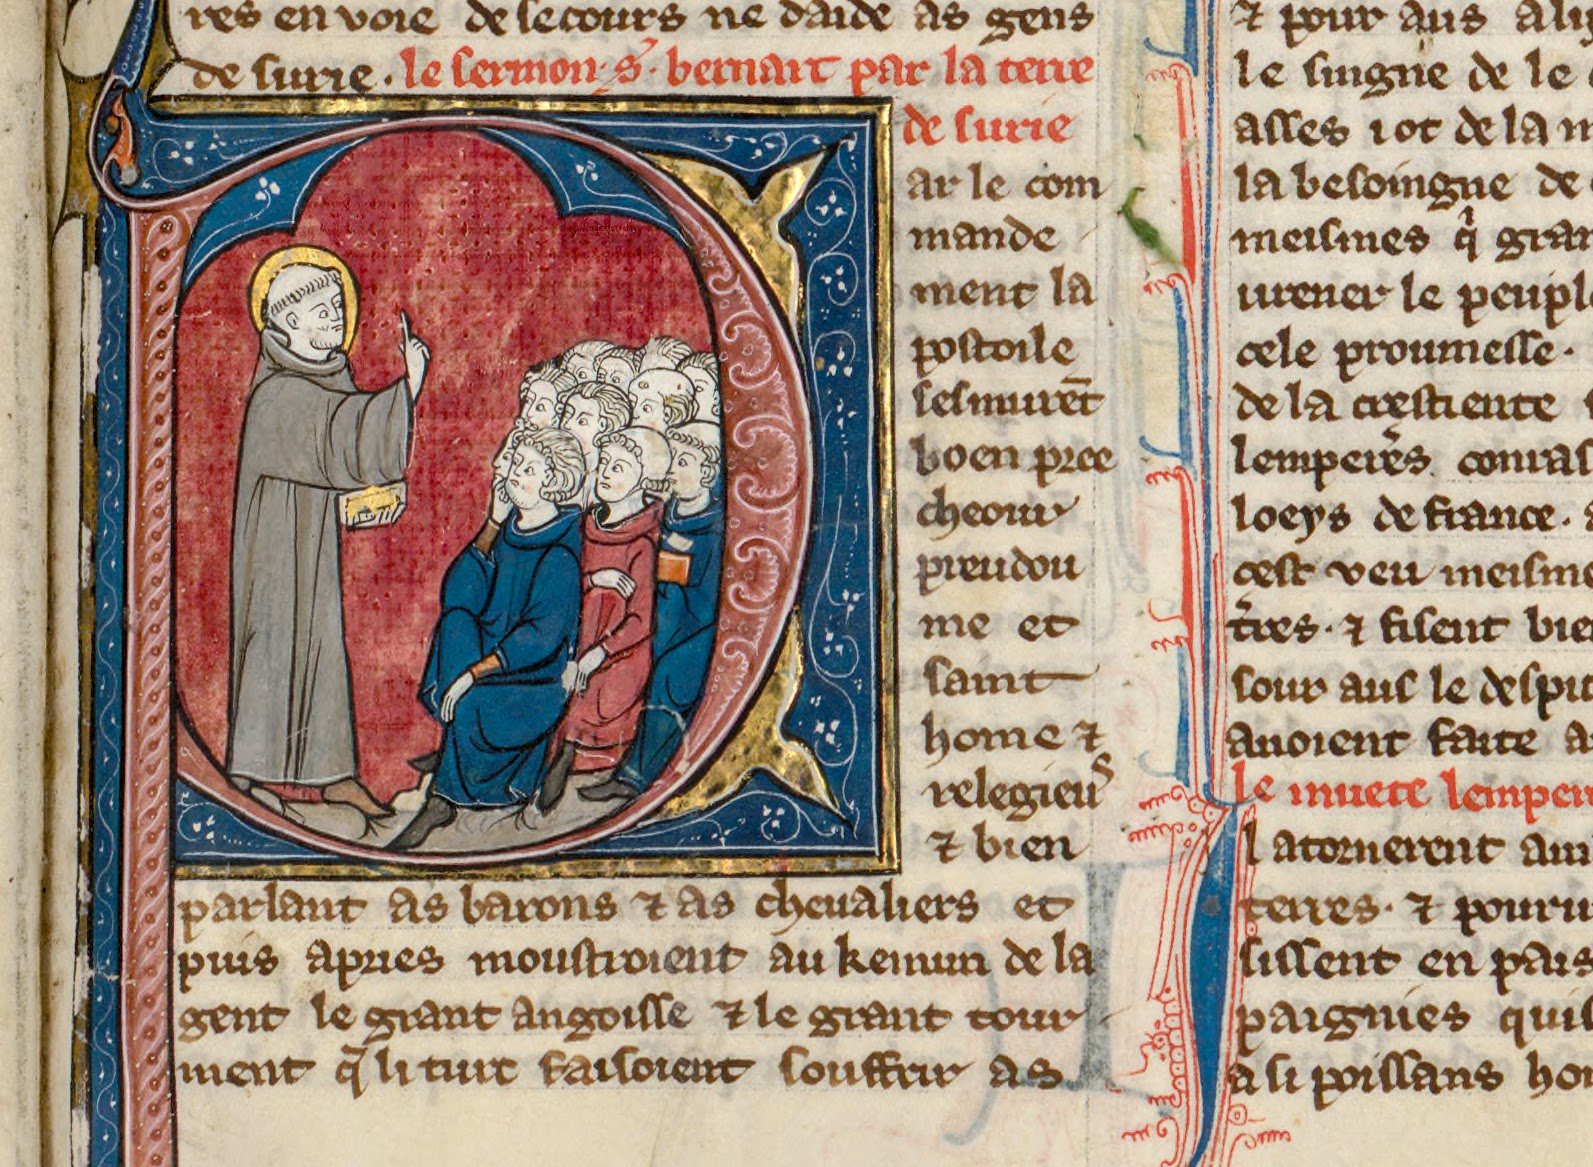 res en voie de secours ne daide as gens
de surie. le sermon. s. bernart par la terre
de surie
ar le com
mande
ment la
postoile
sesmurēt
boen pree
cheour
preudou
me et
saint
home ⁊
relegieuˢ
⁊ bien
parlant as barons ⁊ as chevaliers et
puis apries moustroient au kemun de la
gent le grant angoisse ⁊ le grant tour
ment q̃ li turc faisoient souffrir as
⁊ pour aus
le singne de le
asses iot de la
la besoingne de
meismes
le peupl
cele proumesse.
de la crestiente
conras
loeys de france.
cest veu meisme
t̃res. ⁊ fisent bie
sour aus le despit
avoient faite a
le muete lemper
l atornerent
terres. ⁊
sissent en pais
paignies qui
a si poissans ho